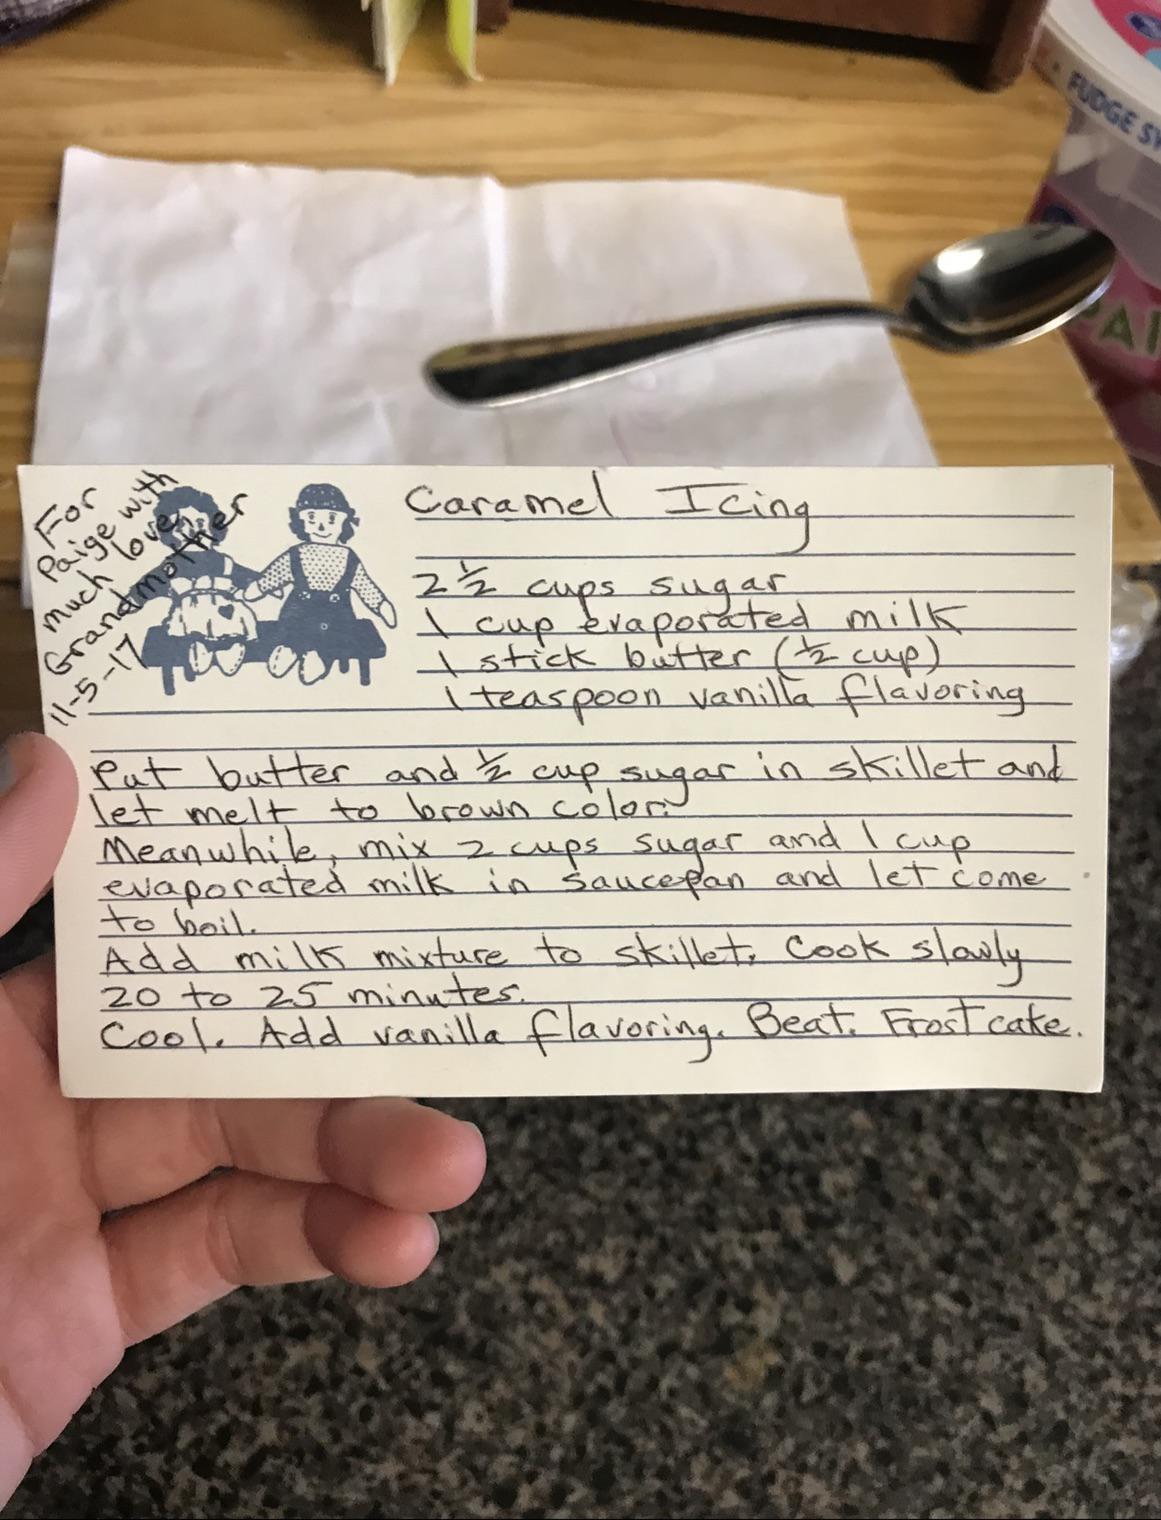 FUDGE
PAI
For
Paige with
much love,
Grandmother
11-5-17
Caramel Icing
2 ½ cups sugar
1 cup evaporated milk
1 stick butter (½ cup)
1 teaspoon vanilla flavoring
Put butter and ½ cup sugar in skillet and
let melt to brown color.
Meanwhile, mix 2 cups sugar and 1 cup
evaporated milk in saucepan and let come
to boil.
Add milk mixture to skillet. Cook slowly
20 to 25 minutes.
Cool. Add vanilla flavoring. Beat. Frost cake.